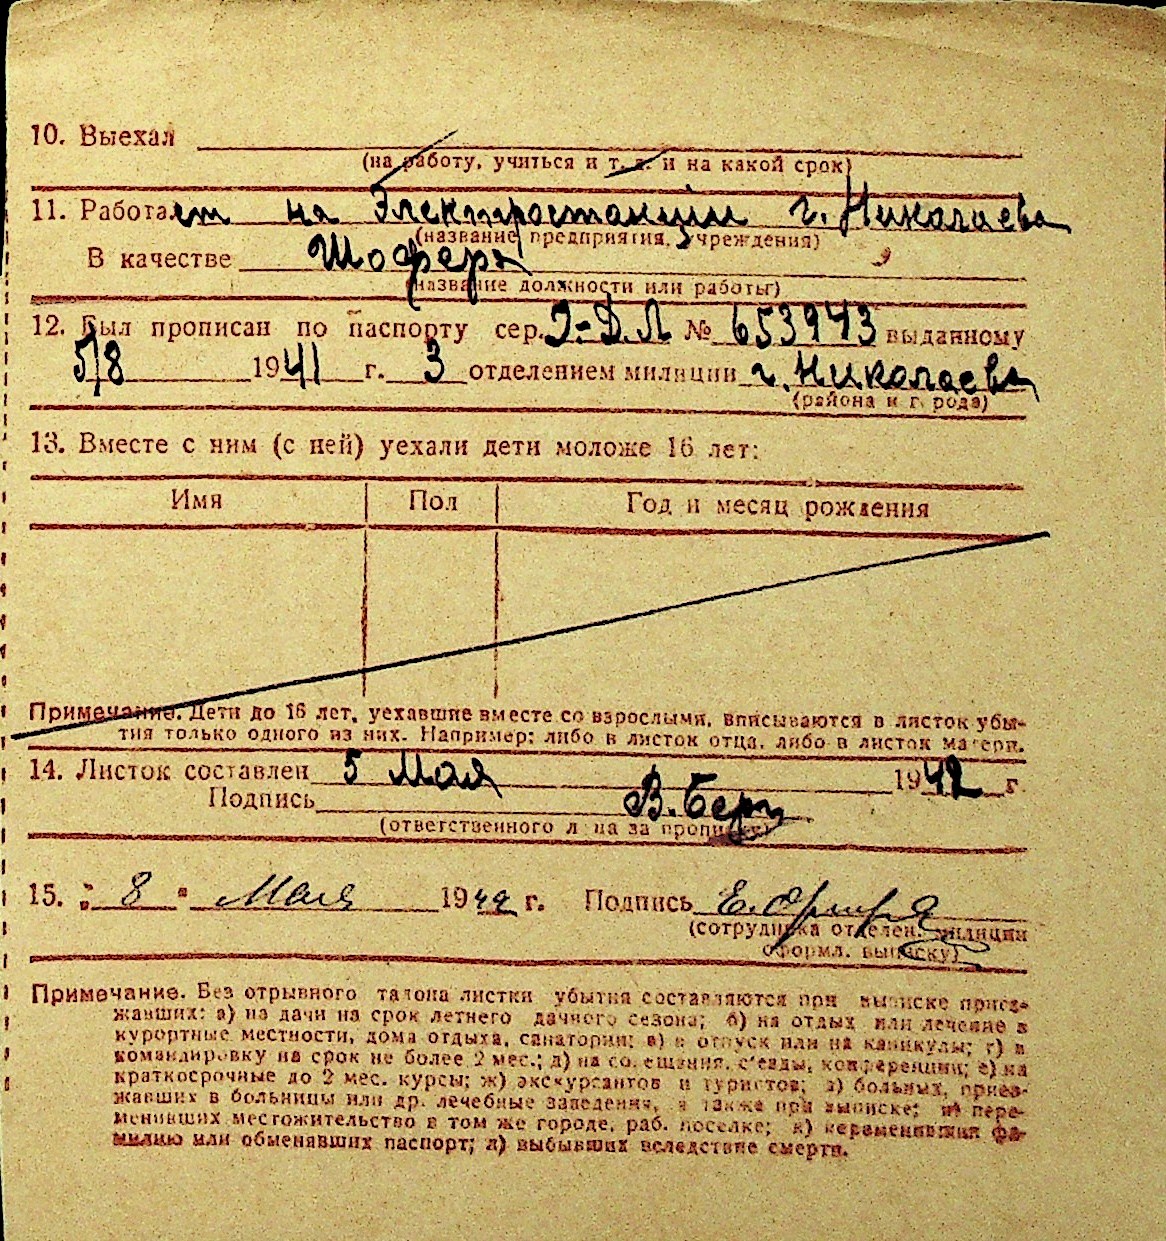 10. Выехал
(на работу, учиться и т. д. и на какой срок)
11. Работает на Электростанции г. Николаева
(название предприятия, учреждения)
В качестве Шофера
(название должности или работы)
12. Был прописан по паспорту сер. Э-ДЛ № 653943 выданному
5/8 1941 г. 3 отделением милиции г. Николаева
(района и города)
13. Вместе с ним (с ней) уехали дети моложе 16 лет:
Имя Пол Год и месяц рождения
Примечание. Дети до 16 лет, уехавшие вместе со взрослыми, вписываются в листок убы-
тия только одного из них. Например: либо в листок отца, либо в листок матери.
14. Листок составлен 5 Мая 1942 г.
Подпись В. Берг
(ответственного лица за прописку)
15. " 8 " Мая 1942 г. Подпись
(сотрудника отделен. милиции
оформл. выписку)
Примечание. Без отрывного талона листки убытия составляются при выписке приез-
жавших: а) на дачи на срок летнего дачного сезона; б) на отдых или лечение в
курортные местности, дома отдыха, санатории; в) в отпуск или на каникулы; г) в
командировку на срок не более 2 мес.; д) на совещания, с'езды, конференции; е) на
краткосрочные до 2 мес. курсы; ж) экскурсантов и туристов; з) больных, приез-
жавших в больницы или др. лечебные заведения, а также при выписке; и) пере-
менивших местожительство в том же городе, раб. поселке; к) переменивших фа-
милию или обменявших паспорт; л) выбывших вследствие смерти.